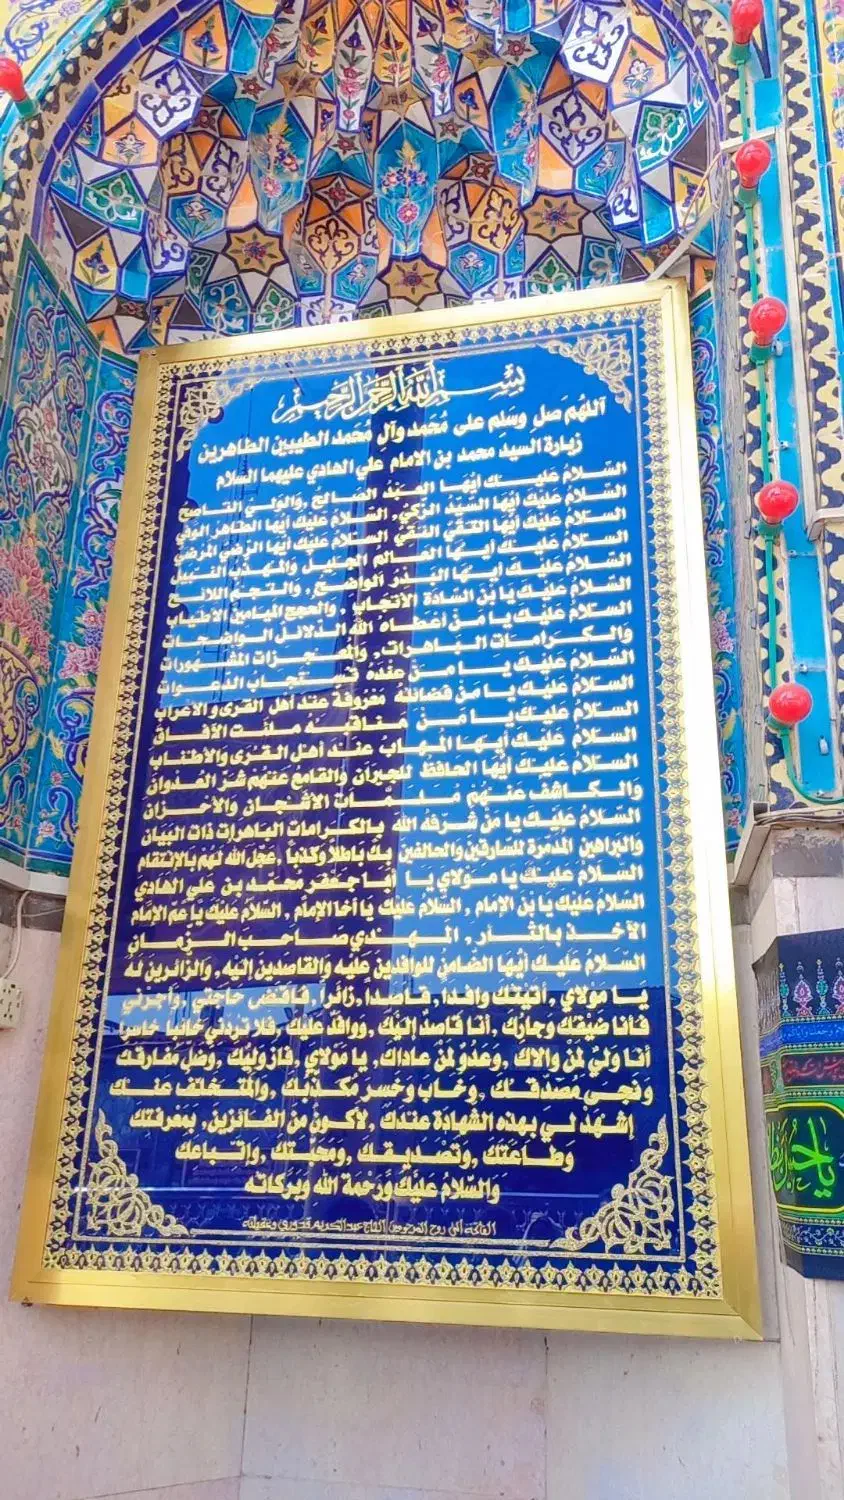 بِسْمِ اللَّهِ الرَّحْمَنِ الرَّحِيمِ
اَللّٰهُمَ صَلِ وَسَلِم عَلى مُحَمد وَآلِ مُحَمد الطيبين الطاهرين
زيارة السيد محمد بن الامام علي الهادي عليهما السلام
السَّلامُ عَلَيْكَ أَيُّهَا السَّيِّدُ الصَّالِحُ ,وَالوَليُ النَّاصِحُ
السَّلامُ عَلَيْكَ أَيُّهَا السَّيّدُ الزَّكيُ, السَّلامُ عَلَيْكَ أيُّها الطاهرُ الوَفيُ
السَّلامُ عَلَيْكَ أَيُّهَا التَّقيُ النَّقيُ السَّلامُ عَلَيْكَ أَيُّهَا الرَّضيُ المَرْضيُ
السَّلامُ عَلَيْكَ أَيُّهَا العَالِمُ الجَليلُ وَالمُهَذَبُ النَّبيلُ
السَّلامُ عَلَيْكَ أَيُّهَا البَدْرُ الوَاضِحُ, وَالنَّجْمُ اللائِحُ
السَّلامُ عَلَيْكَ يَا بْنَ السَّادَةِ الأَنْجَابِ , وَالحُجَجِ المَيامينِ الأَطْيابِ
السَّلامُ عَلَيْكَ يَا مَنْ أعْطَاهُ اللهُ الدَّلائِلَ الوَاضِحَاتِ
وَالكَرَامَاتِ البَاهِرَاتِ, وَالمُعجِزَاتِ المَشْهُورَاتِ
السَّلامُ عَلَيْكَ يَا مَنْ عِنْدَهُ تُسْتَجَابُ الدَّعَوَاتُ
السَّلامُ عَلَيْكَ يَا مَنْ فَضَائِلُهُ مَعْرُوفَةٌ عِنْدَ أَهْلِ القُرَى وَالأعْرَابِ
السَّلامُ عَلَيْكَ يَا مَنْ مَنَاقِبُهُ مَلَئَتِ الآفَاقَ
السَّلامُ عَلَيْكَ أَيُّهَا المُهَابُ عِنْدَ أَهْلِ القُرَى وَالأَطْنَابِ
السَّلامُ عَلَيْكَ أَيُّهَا الحَافِظُ لِلْجِيرَانِ وَالقَامِعُ عَنْهُمْ شَرَّ العُدْوَانِ
وَالكَاشِفُ عَنْهُمْ مُلِمَّاتِ الأَشْجَانِ وَالأَحْزَانِ
السَّلامُ عَلَيْكَ يَا مَنْ شَرَّفَهُ اللهُ بِالكَرَامَاتِ البَاهِرَاتِ ذَاتِ البَيَانِ
وَالبَرَاهِينِ المُدَمِرَةِ لِلسَارِقينَ وَالحَالِفينَ بِكَ بَاطِلاً وَكَذِباً , عَجَّلَ اللهُ لَهُمْ بِالإِنْتِقَامِ
السَّلامُ عَلَيْكَ يَا مَوْلايَ يَا أَبَا جَعْفَرٍ مُحَمَّدَ بْنَ عَليٍ الهَادي
السَّلامُ عَلَيْكَ يَا بْنَ الإِمَامِ , السَّلامُ عَلَيْكَ يَا أخَا الإِمَامِ , السَّلامُ عَلَيْكَ يَا عَمَّ الإِمَامِ
الآخِذِ بِالثَّارِ , المَهْدي صَاحِبِ الزَّمَانِ
السَّلامُ عَلَيْكَ أَيُّهَا الضَّامِنُ لِلْوَافِدِينَ عَلَيْهِ وَالقَاصِدِينَ إِلَيْهِ, وَالزَّائِرِينَ لَهُ
يَا مَوْلايَ , أَتَيْتُكَ وَافِدَا, قَاصِدَا, زَائِرَا, فَاقْضِ حَاجَتي , وَأَجِرْني
فَأنَا ضَيْفُكَ وَجَارُكَ, أنَا قَاصِدٌ إِلَيْكَ , وَوَافِدٌ عَلَيْكَ , فَلا تَرُدَني خَائِبَاً خَاسِرَاً
أنَا وَليٌ لِمَنْ وَالاكَ , وَعَدُوٌ لِمَنْ عَادَاكَ, يَا مَوْلايَ , فَازَ وَلِيُكَ, وَضَلَّ مُفَارِقُكَ
وَنَجَى مُصَدِقُكَ , وَخَابَ وَخَسِرَ مُكَذِبُكَ , وَالمُتَخَلِفُ عَنْكَ
إشْهَدْ لي بِهَذِهِ الشَّهَادَةِ عِنْدَكَ , لأكُونَ مِنَ الفَائِزينَ, بِمَعْرِفَتِكَ
وَطَاعَتِكَ , وَتَصْديقِكَ , وَمَحَبَّتِكَ , وَإتِّبَاعِكَ
وَالسَّلامُ عَلَيْكَ وَرَحْمَةُ اللهِ وَبَرَكَاتُه
الفاتحة الى روح المرحومين الحاج عبدالكريم